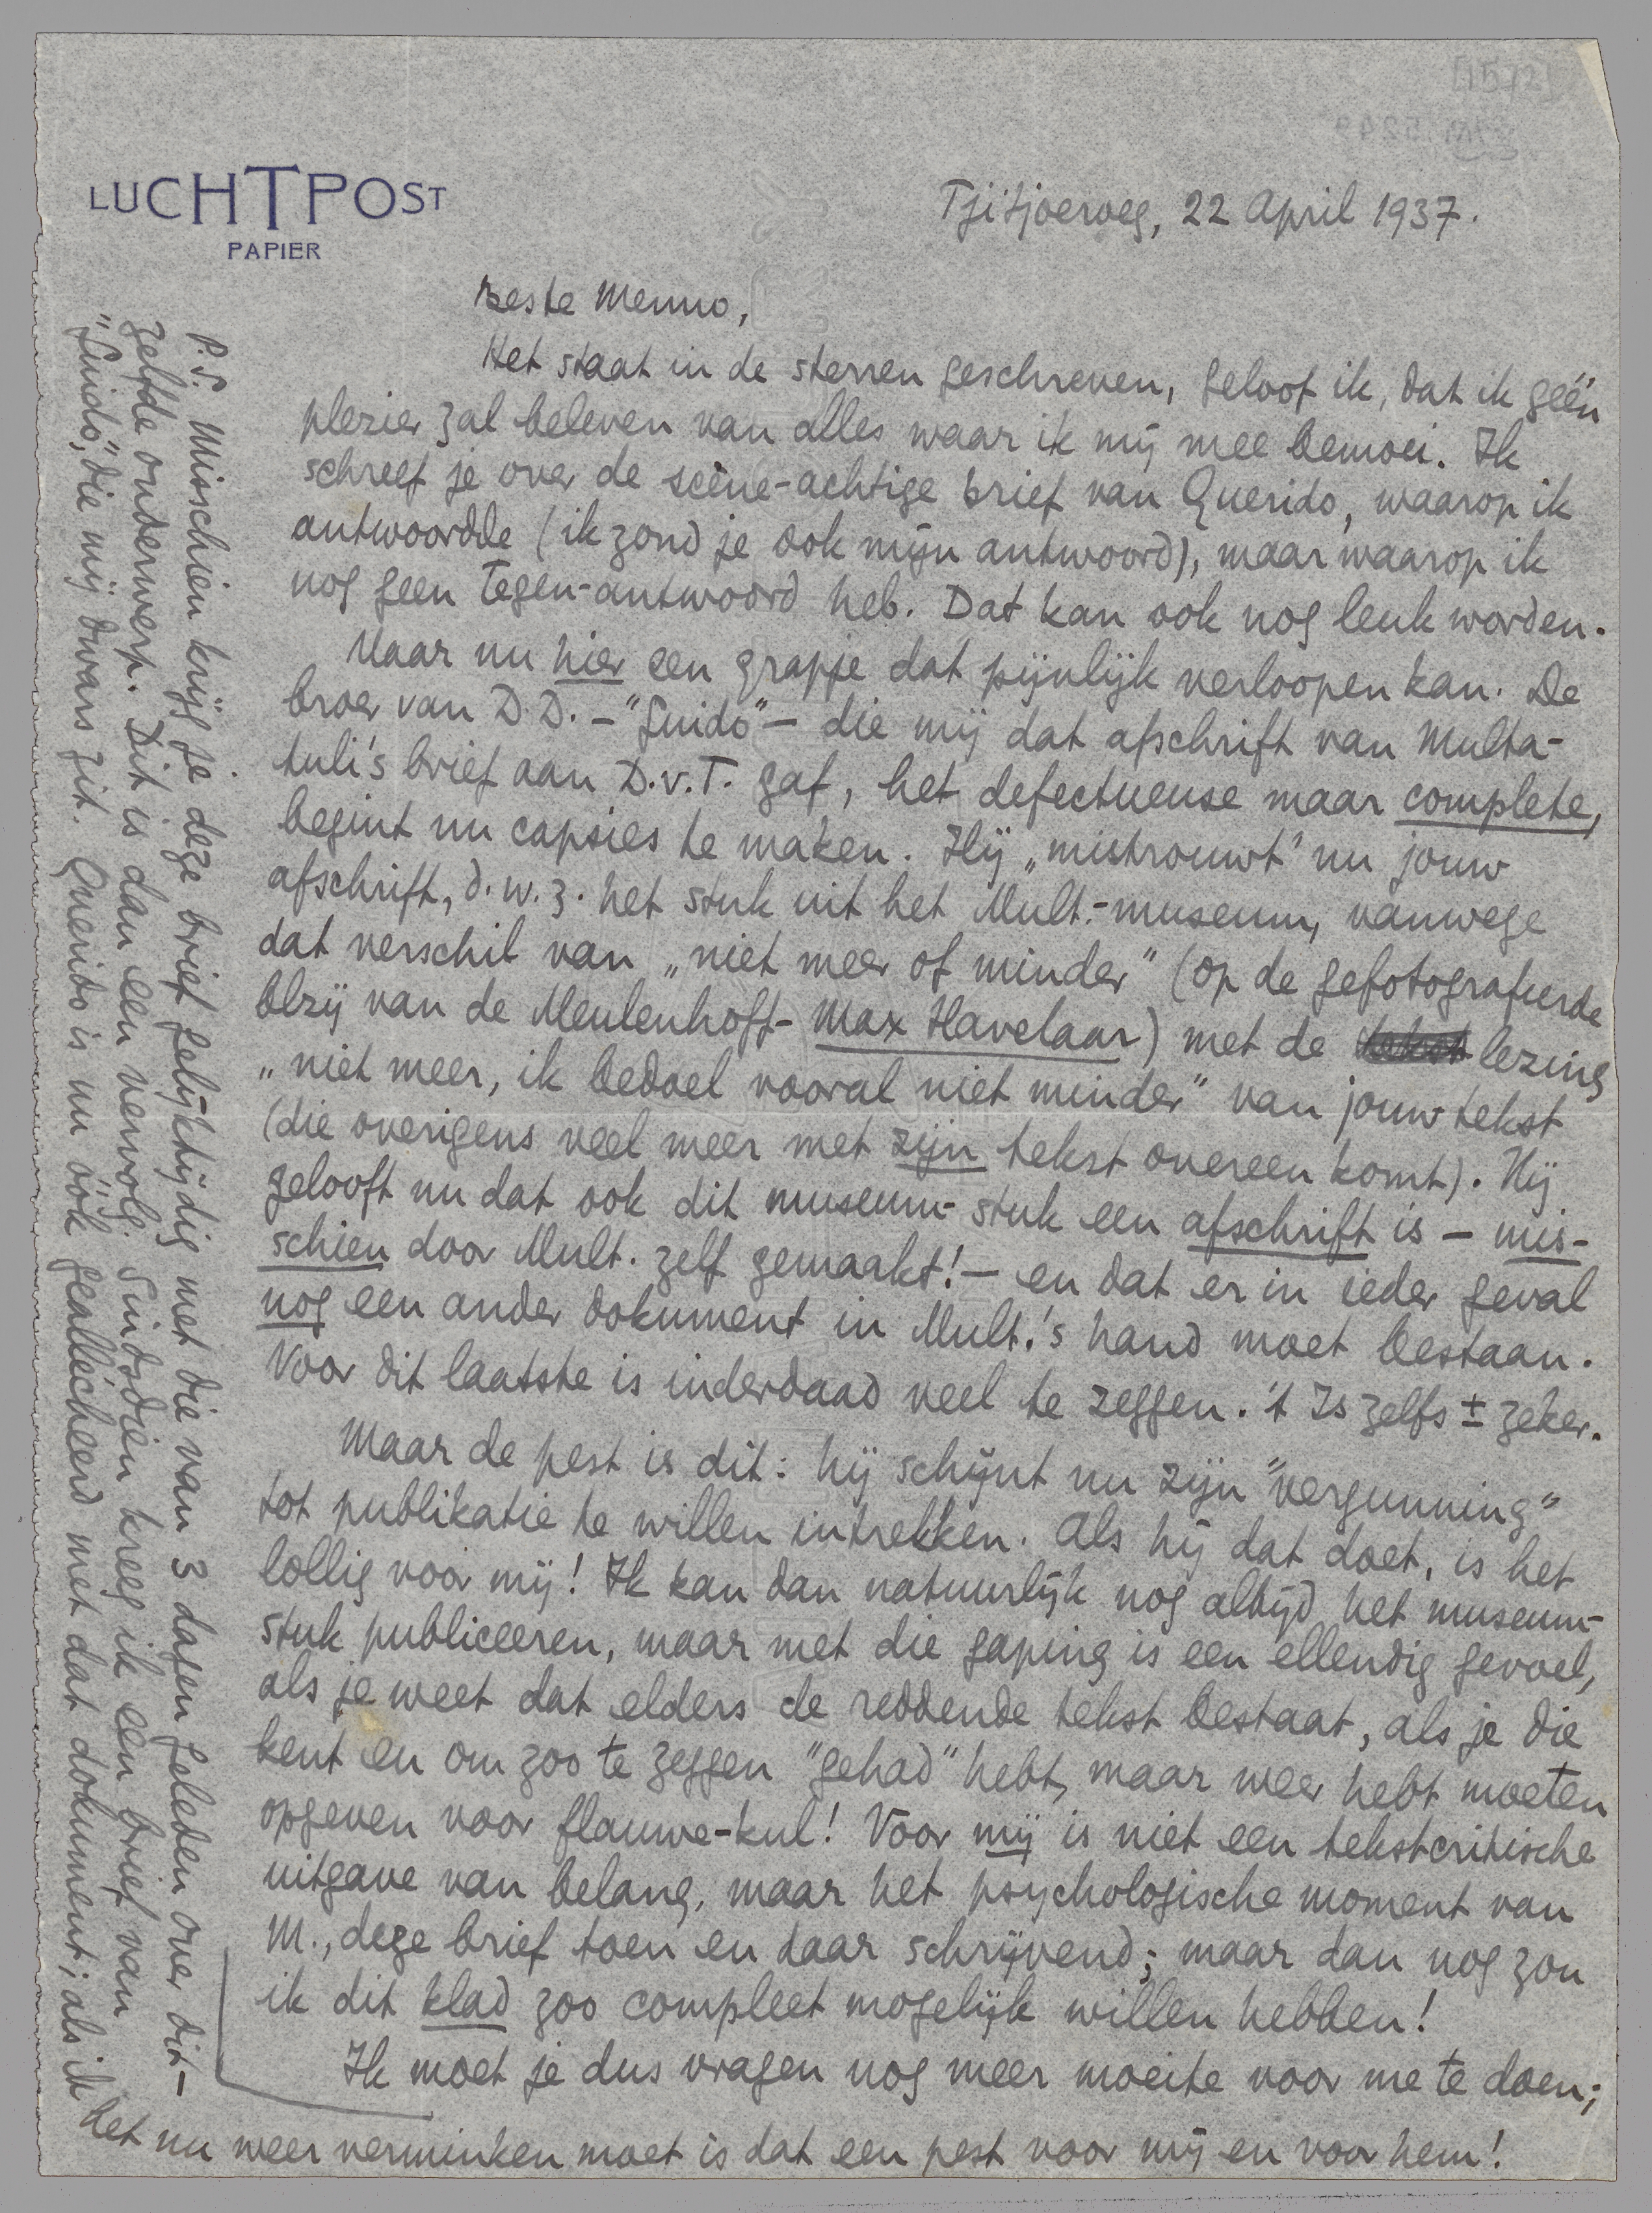 LUCHTPOST
PAPIER
Tjitjoeroeg, 22 April 1937.
Beste Menno,
Het staat in de sterren geschreven, geloof ik, dat ik géén
plezier zal beleven van alles waar ik mij mee bemoei. Ik
schreef je over de scène-achtige brief van Querido, waarop ik
antwoordde (ik zond je ook mijn antwoord), maar waarop ik
nog geen tegen-antwoord heb. Dat kan ook nog leuk worden.
Maar nu hier een grapje dat pijnlijk verloopen kan. De
broer van D.D. - "Guido" - die mij dat afschrift van Multa-
tuli's brief aan D.v.T. gaf, het defectueuse maar complete,
begint nu capsies te maken. Hij „mistrouwt" nu jouw
afschrift, d.w.z. het stuk uit het Mult.-museum, vanwege
dat verschil van „niet meer of minder" (op de gefotografeerde
blzij van de Meulenhoff-Max Havelaar) met de lezing
„niet meer, ik bedoel vooral niet minder" van jouw tekst
(die overigens veel meer met zijn tekst overeen komt). Hij
gelooft nu dat ook dit museum-stuk een afschrift is - mis-
schien door Mult. zelf gemaakt! - en dat er in ieder geval
nog een ander dokument in Mult.'s hand moet bestaan.
Voor dit laatste is inderdaad veel te zeggen. 't Is zelfs ± zeker.
Maar de pest is dit: hij schijnt nu zijn "vergunning"
tot publikatie te willen intrekken. Als hij dat doet, is het
lollig voor mij! Ik kan dan natuurlijk nog altijd het museum-
stuk publiceeren, maar met die gaping is een ellendig gevoel,
als je weet dat elders de reddende tekst bestaat, als je die
kent en om zoo te zeggen "gehad" hebt, maar weer hebt moeten
opgeven voor flauwe-kul! Voor mij is niet een tekstcritische
uitgave van belang, maar het psychologische moment van
M., deze brief toen en daar schrijvend; maar dan nog zou
ik dit klad zoo compleet mogelijk willen hebben!
Ik moet je dus vragen nog meer moeite voor me te doen;
P.S. Misschien krijg je deze brief gelijktijdig met die van 3 dagen geleden over dit-
zelfde onderwerp. Dit is dan een vervolg. Sindsdien kreeg ik een brief van
"Guido," die mij dwars zit. Querido is nu óók geallécheerd met dat dokument; als ik
het nu weer verminken moet is dat een pest voor mij en voor hem!